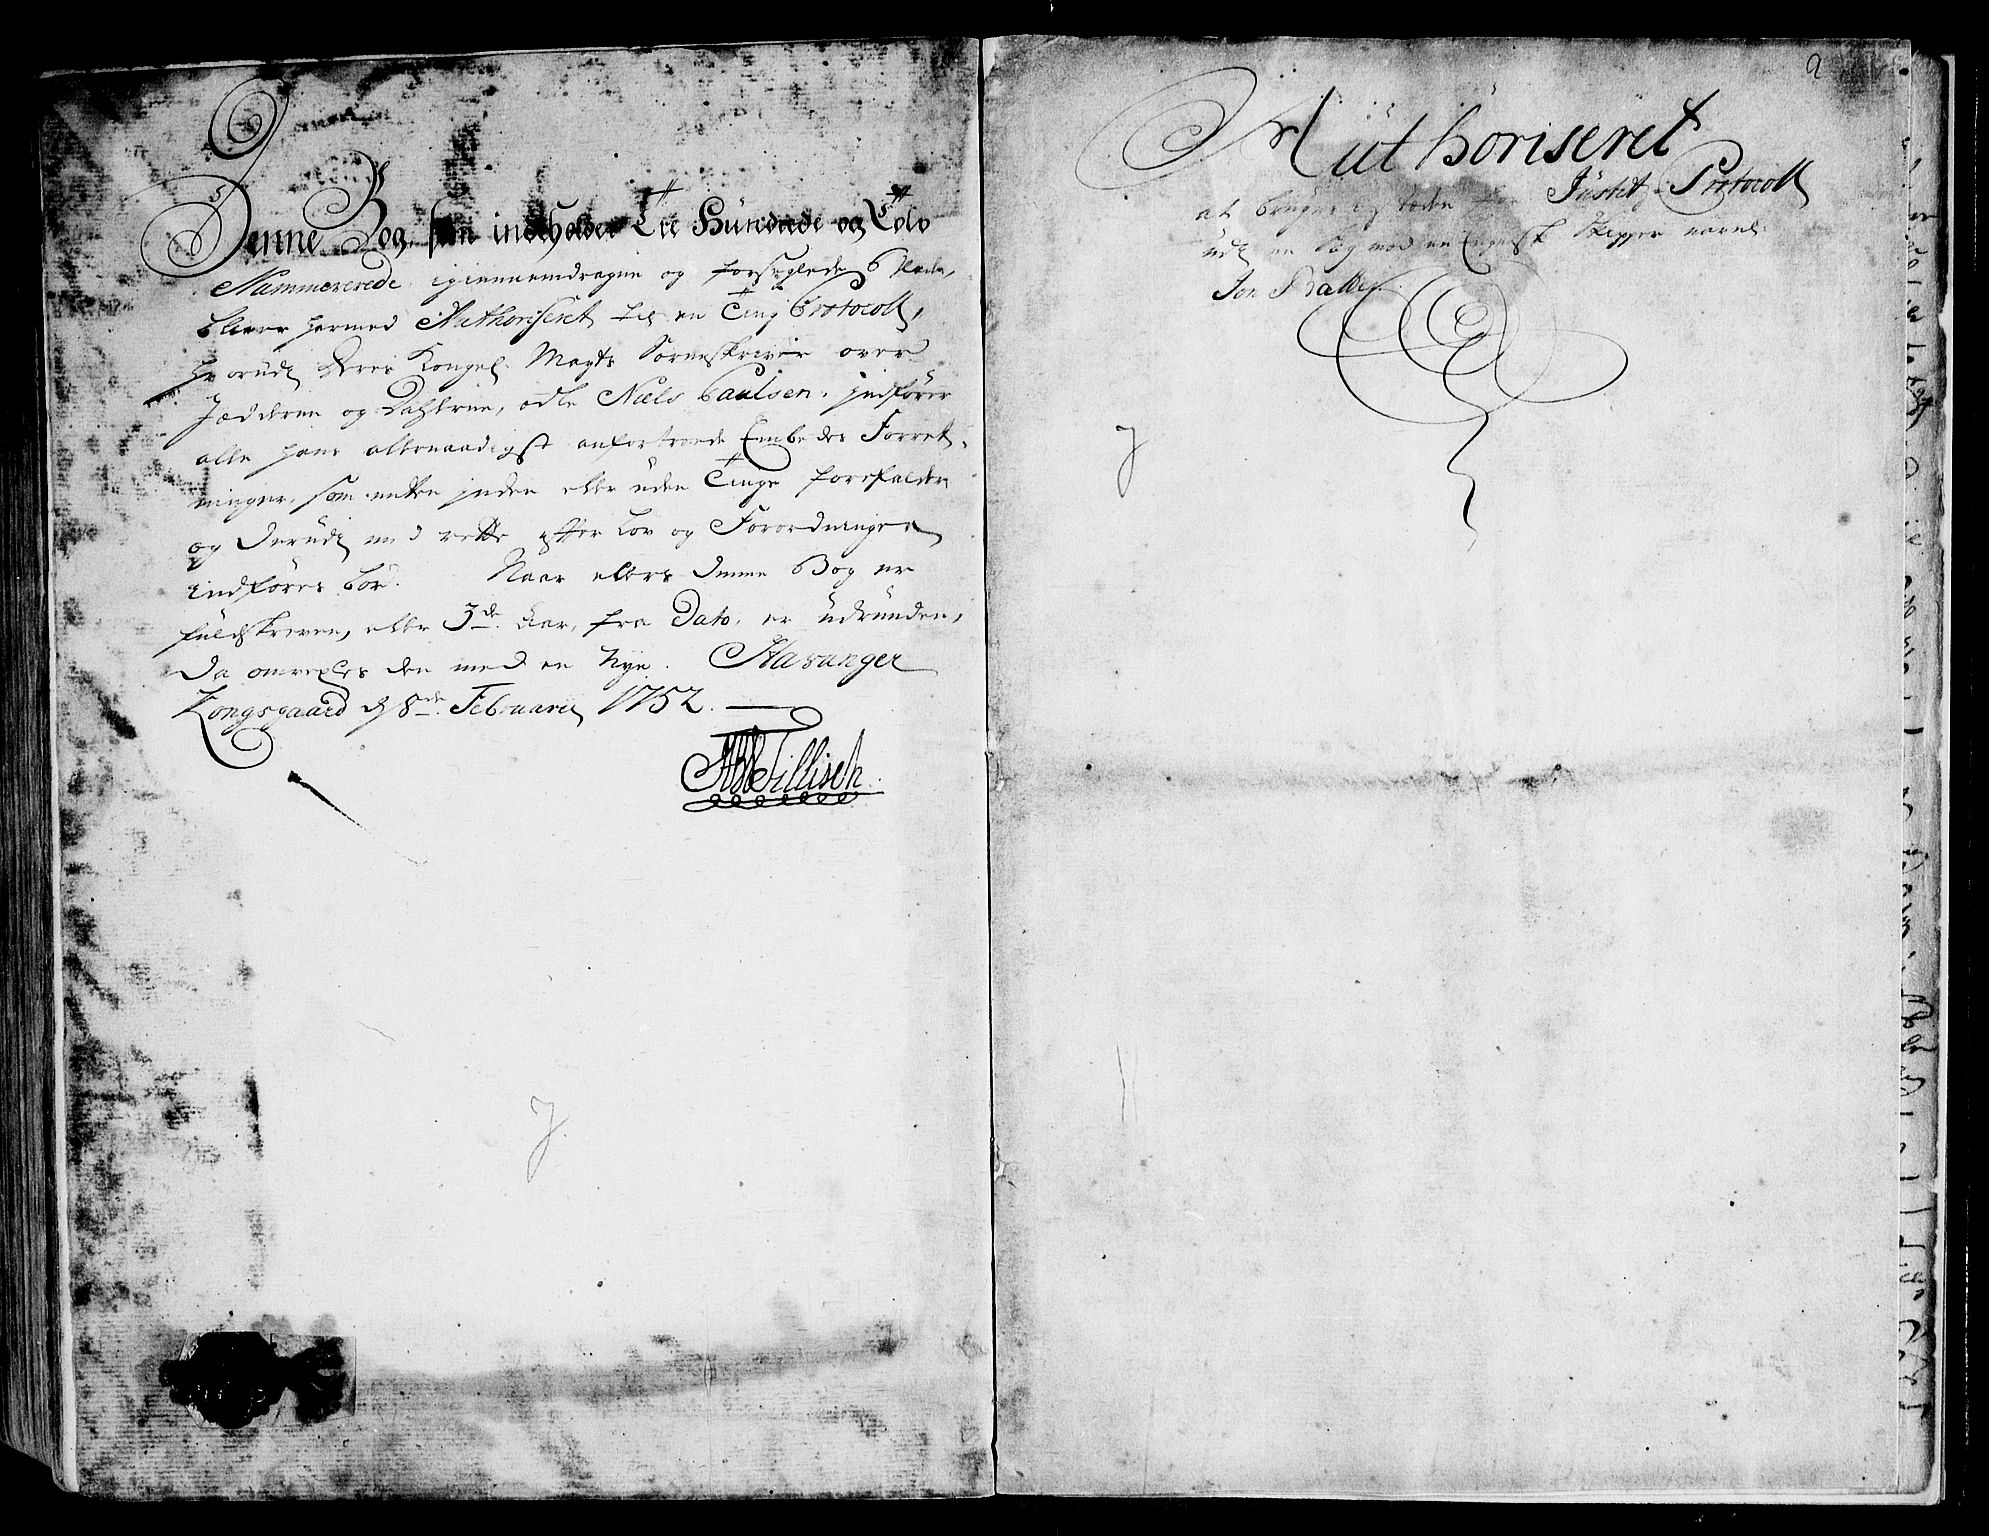 Denne Bog, som indeholder Tre Hündrede og Tolv
Nummererede, igiennemdragne og forseglede Blade,
bliver hermed Authoriseret til en Ting Protocoll,
hvorudj Deres Kongel. Mayts Sorenskriver over
Jedderen og Dahlerne, ædle Niels Paulsen, indfører
alle hans allernaadigst anfortroede Embedes Forret-
ninger, som enten inden eller uden Tinge forefalder
og derudj med rette efter Lov og Forordninger
indføres bør. Naar ellers denne Bog er
fuldskreven, eller 3de Aar, fra Dato, er udrunden,
da omvexles den med en Nye. Stavanger
Kongsgaard d 8de Februarii 1752.
Tillisch.
J
2
Authoriseret
at bruges i stæden for Justitz-Protocoll
udj en Sag mod en Engelsk Skipper navnl.
Jon
J